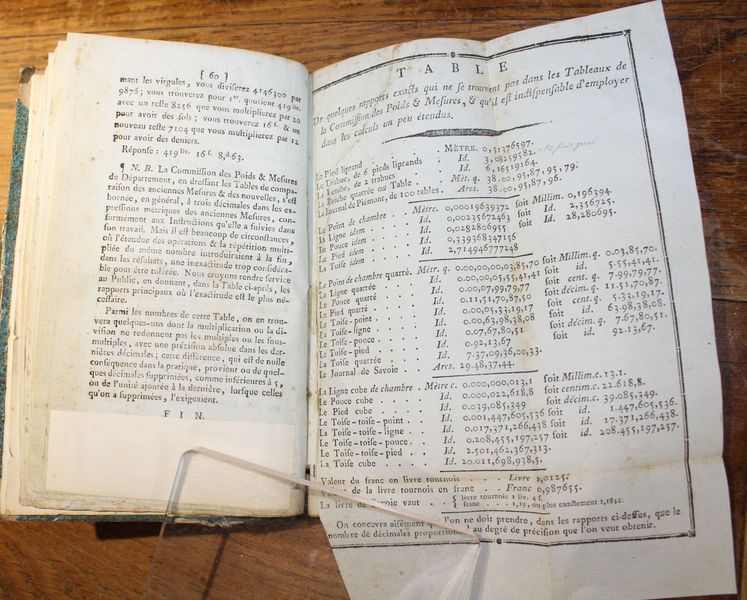 [ 60 ]
mant les virgules, vous diviserez 4146300 par
9876; vous trouverez pour 1er. quotient 419 liv.
avec un reste 8256 que vous multiplierez par 20
pour avoir des sols; vous trouverez 16 f. & un
nouveau reste 7104 que vous multiplierez par 12
pour avoir des deniers.
Réponse: 419 liv. 16 f. 8,d.63.
¶ N. B. La Commission des Poids & Mesures
du Département, en dressant les Tables de compa-
raison des anciennes Mesures & des nouvelles, s'est
bornée, en général, à trois décimales dans les ex-
pressions métriques des anciennes Mesures, con-
formément aux Instructions qu'elle a suivies dans
son travail. Mais il est beaucoup de circonstances,
où l'étendue des opérations & la répétition multi-
pliée du même nombre introduiraient à la fin,
dans les résultats, une inexactitude trop considéra-
ble pour être tolérée. Nous croyons rendre service
au Public, en donnant, dans la Table ci-après, les
rapports principaux où l'exactitude est le plus né-
cessaire.
Parmi les nombres de cette Table, on en trou-
vera quelques-uns dont la multiplication ou la di-
vision ne redonnent pas les multiples ou les sous-
multiples, avec une précision absolue dans les der-
nières décimales; cette différence, qui est de nulle
conséquence dans la pratique, provient ou de quel-
ques décimales supprimées, comme inférieures à 5,
ou de l'unité ajoutée à la dernière, lorsque celles
qu'on a supprimées, l'exigeaient.
FIN.
TABLE
De quelques rapports exacts qui ne se trouvent pas dans les Tableaux de
la Commission des Poids & Mesures, & qu'il est indispensable d'employer
dans les calculs un peu étendus.
Le Pied liprand . . . MÈTRE. 0,51376597.
Le Trabuc, de 6 pieds liprands Id. 3,08259582.
La Perche, de 2 trabucs Id. 6,16519164.
La Perche quarrée ou Table . Mèt. q. 38.00,95,87,95,79;
Le Journal de Piémont, de 100 tables. Ares. 38.00,95,87,96.
Le Point de chambre . Mètre. 0,00019639372 soit Millim. 0,196394.
La Ligne idem . . . Id. 0,00235672463 soit Id. 2,356725.
Le Pouce idem . . . Id. 0,0282806955 soit Id. 28,280695.
Le Pied idem . . . Id. 0,339368347156
La Toise idem . . . Id. 2,714946777248
Le Point de chambre quarré. Mètr. q. 0.00,00,00,03,85,70 soit Millim. q. 0.03,85,70.
La Ligne quarrée . . . Id. 0.00,00,05,55,41,41 soit Id. 5.55,41,41.
Le Pouce quarré . . . Id. 0.00,07,99,79,77 soit cent. q. 7.99,79,77.
Le Pied quarré . . . Id. 0.11,51,70,87,50 soit décim. q. 11.51,70,87.
La Toise-point . . . Id. 0.00,05,33,19,17 soit cent. q. 5.33,19,17.
La Toise-ligne . . . Id. 0.00,63,98,38,08 soit Id. 63.98,38,08.
La Toise-pouce . . . Id. 0.07,67,80,51 soit décim. q. 7.67,80,51.
La Toise-pied . . . Id. 0.92,13,67 soit Id. 92.13,67.
La Toise quarrée . . . Id. 7.37,09,36,00,33.
Le Journal de Savoie . . . Ares. 29.48,37,44.
La Ligne cube de chambre . Mètre c. 0.000,000,013,1 soit Millim. c. 13.1.
Le Pouce cube . . . Id. 0.000,022,618,8 soit centim. c. 22.618,8.
Le Pied cube . . . Id. 0.039,085,349 soit décim. c. 39.085,349.
La Toise-toise-point . . . Id. 0.001,447,605,536 soit Id. 1.447,605,536.
La Toise-toise-ligne . . . Id. 0.017,371,266,438 soit Id. 17.371,266,438.
La Toise-toise-pouce . . . Id. 0.208,455,197,257 soit Id. 208.455,197,257.
La Toise-toise-pied . . . Id. 2.501,462,367,313.
La Toise cube . . . Id. 20.011,698,938,5.
Valeur du franc en livre tournois . . . Livre 1,0125:
Valeur de la livre tournois en franc . . Franc 0,987655.
La livre de Savoie vaut . . { livre tournois 1 liv. 4 f.
{ franc . . . 1,19; ou plus exactement 1,1852.
On concevra aisément que l'on ne doit prendre, dans les rapports ci-dessus, que le
nombre de décimales proportionné au degré de précision que l'on veut obtenir.